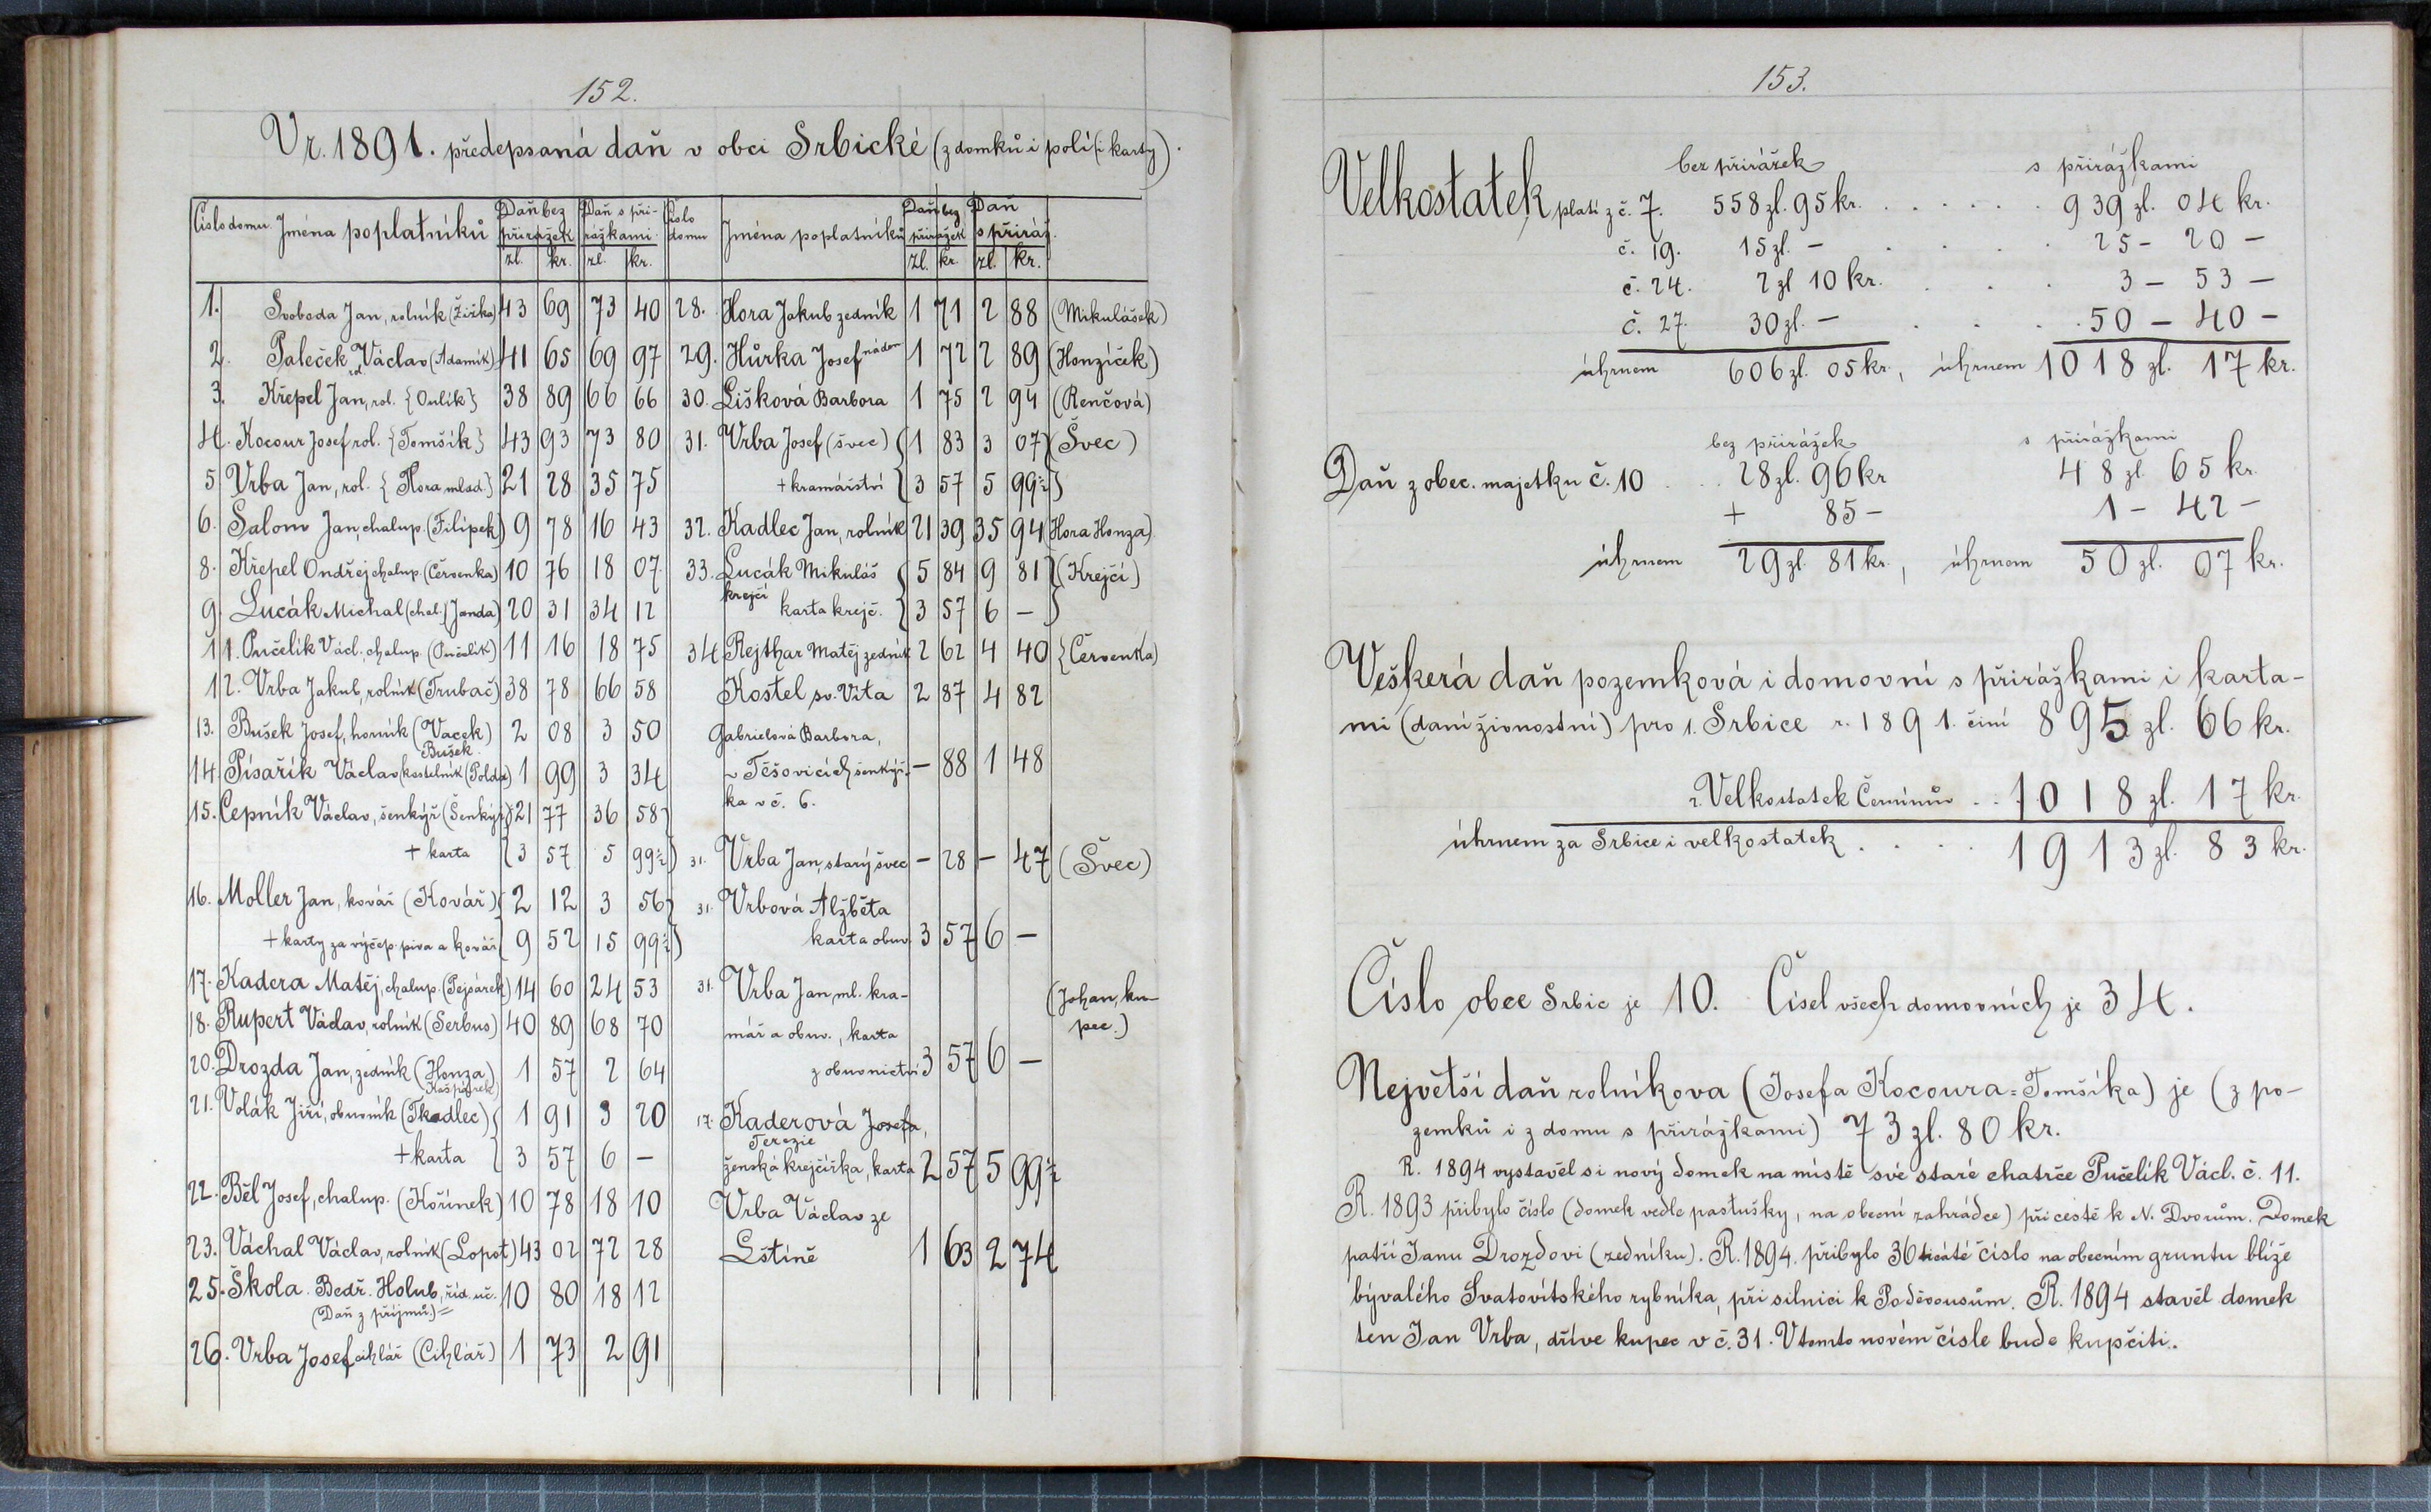 152.
V r. 1891. předepsaná daň v obci Srbické (z domků i polí (i karty).
Číslo domu. Jména poplatníků Daň bez přirážek zl. kr. Daň s přirážkami zl. kr. Číslo domu Jména poplatníků Daň bez přirážek zl. kr. Daň s přiráž. zl. kr.
1. Svoboda Jan, rolník (Žižka) 43 69 73 40
2. Paleček Václav rol. (Adamík) 41 65 69 97
3. Křepel Jan, rol. {Onlík} 38 89 66 66
4. Kocour Josef rol. {Tomšík} 43 93 73 80
5 Vrba Jan, rol. {Hora mlad.} 21 28 35 75
6. Salom Jan, chalup. (Filípek) 9 78 16 43
8. Křepel Ondřej chalup. (Červenka) 10 76 18 07
9. Lucák Michal (chal.) (Janda) 20 31 34 12
11. Pučelík Václ. chalup. (Pučelík) 11 16 18 75
12. Vrba Jakub, rolník (Trubač) 38 78 66 58
13. Bušek Josef, horník (Vacek) 2 08 3 50
Bušek
14. Písařík Václav (kostelník (Polda) 1 99 3 34
15. Cepník Václav, šenkýř (Šenkýř) 21 77 36 58
+ karta 3 57 5 99½
16. Moller Jan, kovář (Kovář) 2 12 3 56
+ karty za výčep. piva a kovář 9 52 15 99½
17. Kadera Matěj, chalup. (Pejsárek) 14 60 24 53
18. Rupert Václav, rolník (Serbus) 40 89 68 70
20. Drozda Jan, zedník (Honza) 1 57 2 64
Kašpárek)
21. Volák Jiří, obuvník (Tkadlec) 1 91 3 20
+ karta 3 57 6 –
22. Běl Josef, chalup. (Kořínek) 10 78 18 10
23. Váchal Václav, rolník (Lopot) 43 02 72 28
25. Škola. Bedř. Holub, říd. uč. 10 80 18 12
(Daň z příjmů.) =
26. Vrba Josef cihlář (Cihlář) 1 73 2 91
28. Hora Jakub zedník 1 71 2 88 (Mikulášek)
29. Hůrka Josef náden 1 72 2 89 (Honzíček)
30. Lišková Barbora 1 75 2 94 (Renčová)
31. Vrba Josef (švec) 1 83 3 07 (Švec)
+ kramářství 3 57 5 99½
32. Kadlec Jan, rolník 21 39 35 94 (Hora Honza)
33. Lucák Mikuláš 5 84 9 81 (Krejčí)
krejčí
karta krejč. 3 57 6 –
34 Rejthar Matěj zedník 2 62 4 40 {Červenka)
Kostel sv. Víta 2 87 4 82
Gabrielová Barbora,
v Těšovicích šenkýř- – 88 1 48
ka v č. 6.
31. Vrba Jan, starý švec – 28 – 47 (Švec)
31. Vrbová Alžběta
karta obuv. 3 57 6 –
31. Vrba Jan ml. kra- (Johan, ku-
mář a obuv., karta pec.)
z obuvnictví 3 57 6 –
17. Kaderová Josefa,
Terezie
ženská krejčířka, karta 2 57 5 99½
Vrba Václav ze
Lštíně 1 63 2 74
153.
bez přirážek s přirážkami
Velkostatek platí z č. 7. 558 zl. 95 kr. . . . . . . 939 zl. 04 kr.
č. 19. 15 zl. – . . . 25 – 20 –
č. 24. 2 zl 10 kr. . . . 3 – 53 –
č. 27. 30 zl. – . . . 50 – 40 –
úhrnem 606 zl. 05 kr., úhrnem 1018 zl. 17 kr.
bez přirážek s přirážkami
Daň z obec. majetku č. 10 . . 28 zl. 96 kr 48 zl. 65 kr.
+ 85 – 1 – 42 –
úhrnem 29 zl. 81 kr., úhrnem 50 zl. 07 kr.
Veškerá daň pozemková i domovní s přirážkami i karta-
mi (daní živnostní) pro 1. Srbice r. 1891. činí 895 zl. 66 kr.
2. Velkostatek Černínův . . 1018 zl. 17 kr.
úhrnem za Srbice i velkostatek . . . . 1913 zl. 83 kr.
Číslo obce Srbic je 10. Čísel všech domovních je 34.
Největší daň rolníkova (Josefa Kocoura = Tomšíka) je (z po-
zemků i z domu s přirážkami) 73 zl. 80 kr.
R. 1894 vystavěl si nový domek na místě své staré chatrče Pučelík Václ. č. 11.
R. 1893 přibylo číslo (domek vedle pastušky, na obecní zahrádce) při cestě k N. Dvorům. Domek
patří Janu Drozdovi (zedníku). R. 1894. přibylo 36ticáté číslo na obecním gruntu blíže
bývalého Svatovítského rybníka, při silnici k Poděvousům. R. 1894 stavěl domek
ten Jan Vrba, dříve kupec v č. 31. V tomto novém čísle bude kupčiti.